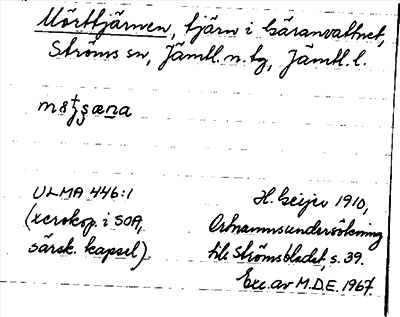 Mörttjärnen, tjärn i Gäranvattnet,
Ströms sn, Jämtl. n. tg, Jämtl. l.
ULMA 446:1
(xerokop. i SOA,
särsk. kapsel)
H. Geijer 1910,
Ortnamnsundersökning
till Strömsbladet, s. 39.
Exc. av M.D.E. 1967.